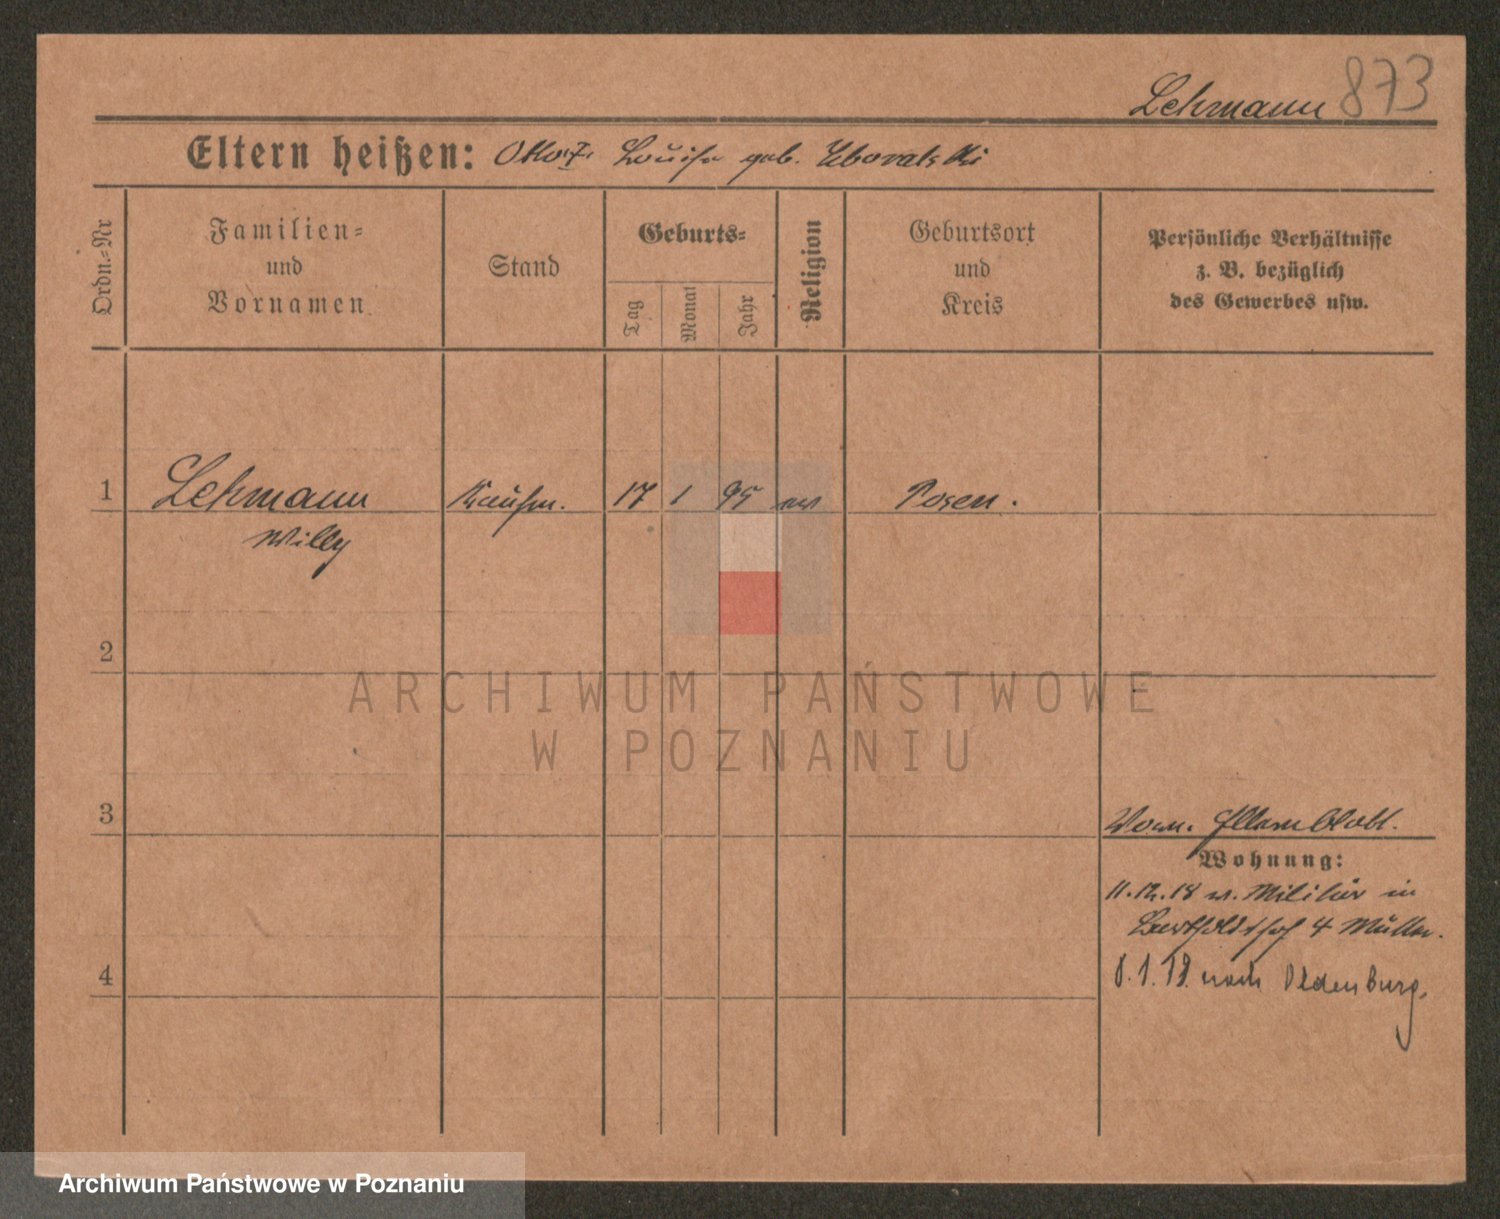 Lehmann 873
Eltern heißen: Otto Louise geb.
Ordn.=Nr
Familien=
und
Vornamen
Stand
Geburts=
Tag
Monat
Jahr
Religion
Geburtsort
und
Kreis
Persönliche Verhältnisse
z. B. bezüglich
des Gewerbes usw.
1 Lehmann Kaufm. 17 1 95 Posen.
Willy
2
ARCHIWUM PAŃSTWOWE
W POZNANIU
3
Wohnung:
11.12.18 v. Militär in
4 Müller.
4
8.1.19. nach Oldenburg.
Archiwum Państwowe w Poznaniu